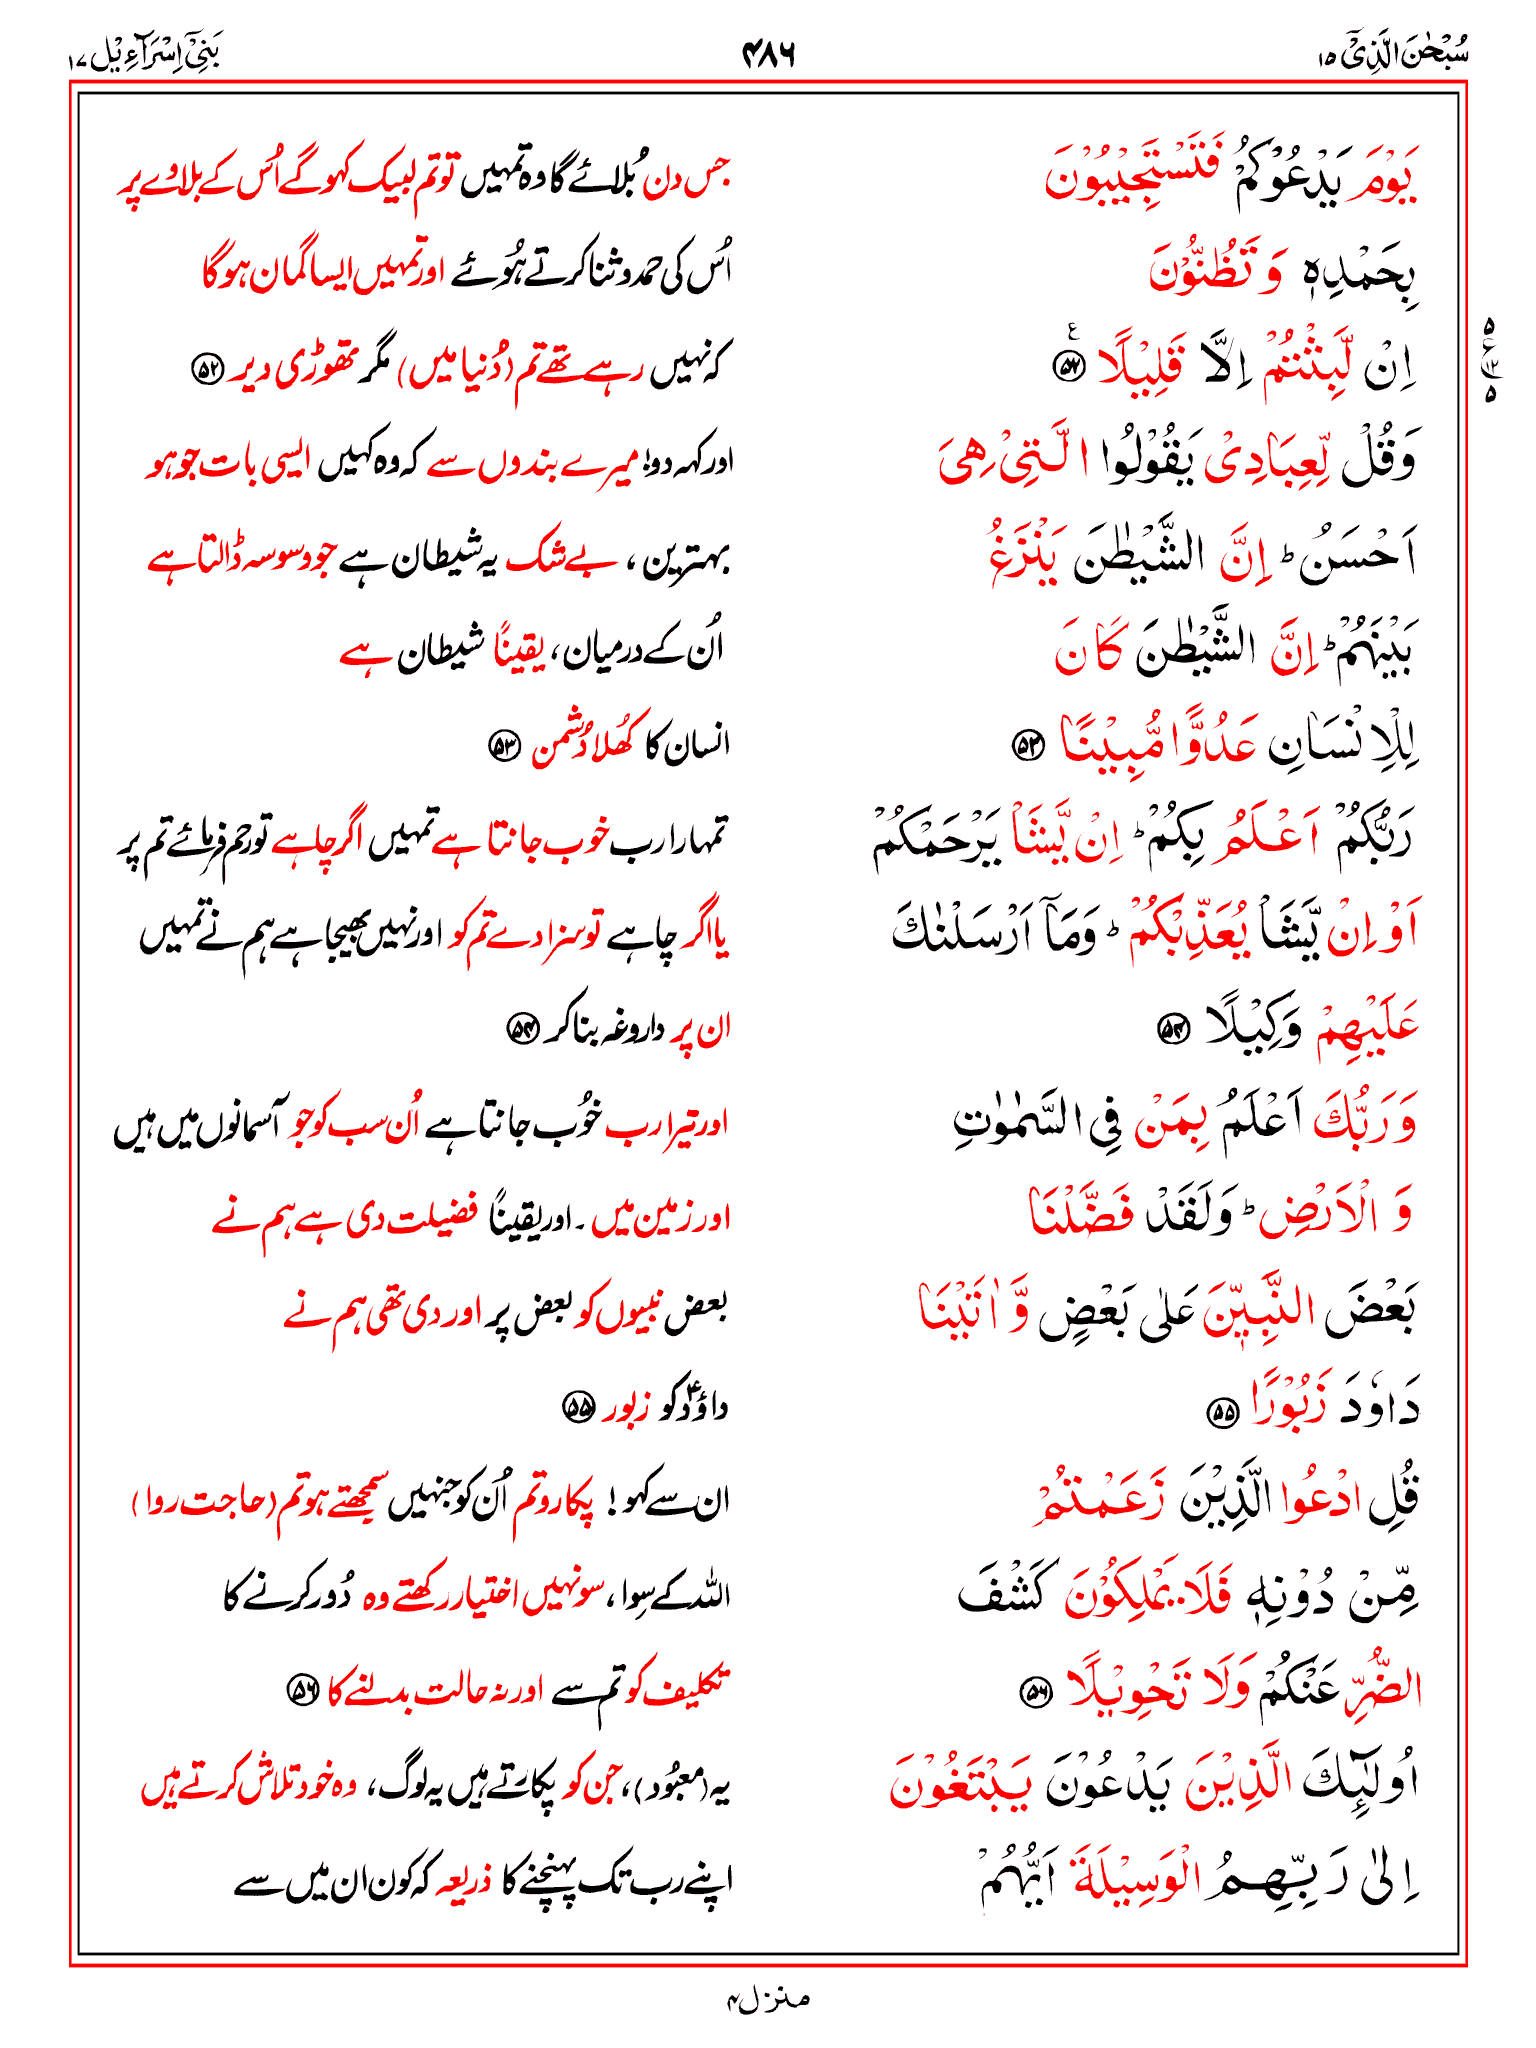 سُبْحٰنَ الَّذِیْۤ ۱۵
۴۸۶
بَنِیْۤ اِسْرَآءِیْل ۱۷
یَوْمَ یَدْعُوْكُمْ فَتَسْتَجِیْبُوْنَ
جس دن بُلائے گا وہ تمہیں تو تم لبیک کہو گے اُس کے بلاوے پر
بِحَمْدِهٖ وَ تَظُنُّوْنَ
اُس کی حمد و ثنا کرتے ہُوئے اور تمہیں ایسا گمان ہوگا
اِنْ لَّبِثْتُمْ اِلَّا قَلِیْلًا ۵۲ ع
کہ نہیں رہے تھے تم (دُنیا میں) مگر تھوڑی دیر ۵۲
۵ ع ۱۲ ۵
وَقُلْ لِّعِبَادِیْ یَقُوْلُوا الَّتِیْ هِیَ
اور کہہ دو! میرے بندوں سے کہ وہ کہیں ایسی بات جو ہو
اَحْسَنُ ؕ اِنَّ الشَّیْطٰنَ یَنْزَغُ
بہترین، بے شک یہ شیطان ہے جو وسوسہ ڈالتا ہے
بَیْنَهُمْ ؕ اِنَّ الشَّیْطٰنَ كَانَ
اُن کے درمیان، یقیناً شیطان ہے
لِلْاِنْسَانِ عَدُوًّا مُّبِیْنًا ۵۳
انسان کا کھُلا دُشمن ۵۳
رَبُّكُمْ اَعْلَمُ بِكُمْ ؕ اِنْ یَّشَاْ یَرْحَمْكُمْ
تمہارا رب خوب جانتا ہے تمہیں اگر چاہے تو رحم فرمائے تم پر
اَوْ اِنْ یَّشَاْ یُعَذِّبْكُمْ ؕ وَمَاۤ اَرْسَلْنٰكَ
یا اگر چاہے تو سزا دے تم کو اور نہیں بھیجا ہے ہم نے تمہیں
عَلَیْهِمْ وَكِیْلًا ۵۴
ان پر داروغہ بنا کر ۵۴
وَرَبُّكَ اَعْلَمُ بِمَنْ فِی السَّمٰوٰتِ
اور تیرا رب خُوب جانتا ہے اُن سب کو جو آسمانوں میں ہیں
وَ الْاَرْضِ ؕ وَلَقَدْ فَضَّلْنَا
اور زمین میں ۔ اور یقیناً فضیلت دی ہے ہم نے
بَعْضَ النَّبِیّٖنَ عَلٰی بَعْضٍ وَّ اٰتَیْنَا
بعض نبیوں کو بعض پر اور دی تھی ہم نے
دَاوٗدَ زَبُوْرًا ۵۵
داؤدؑ کو زبور ۵۵
قُلِ ادْعُوا الَّذِیْنَ زَعَمْتُمْ
ان سے کہو! پکارو تم اُن کو جنہیں سمجھتے ہو تم (حاجت روا)
مِّنْ دُوْنِهٖ فَلَا یَمْلِكُوْنَ كَشْفَ
اللہ کے سِوا، سو نہیں اختیار رکھتے وہ دُور کرنے کا
الضُّرِّ عَنْكُمْ وَلَا تَحْوِیْلًا ۵۶
تکلیف کو تم سے اور نہ حالت بدلنے کا ۵۶
اُولٰٓىِٕكَ الَّذِیْنَ یَدْعُوْنَ یَبْتَغُوْنَ
یہ (معبُود)، جن کو پکارتے ہیں یہ لوگ، وہ خود تلاش کرتے ہیں
اِلٰی رَبِّهِمُ الْوَسِیْلَةَ اَیُّهُمْ
اپنے رب تک پہنچنے کا ذریعہ کہ کون ان میں سے
منزل ۴